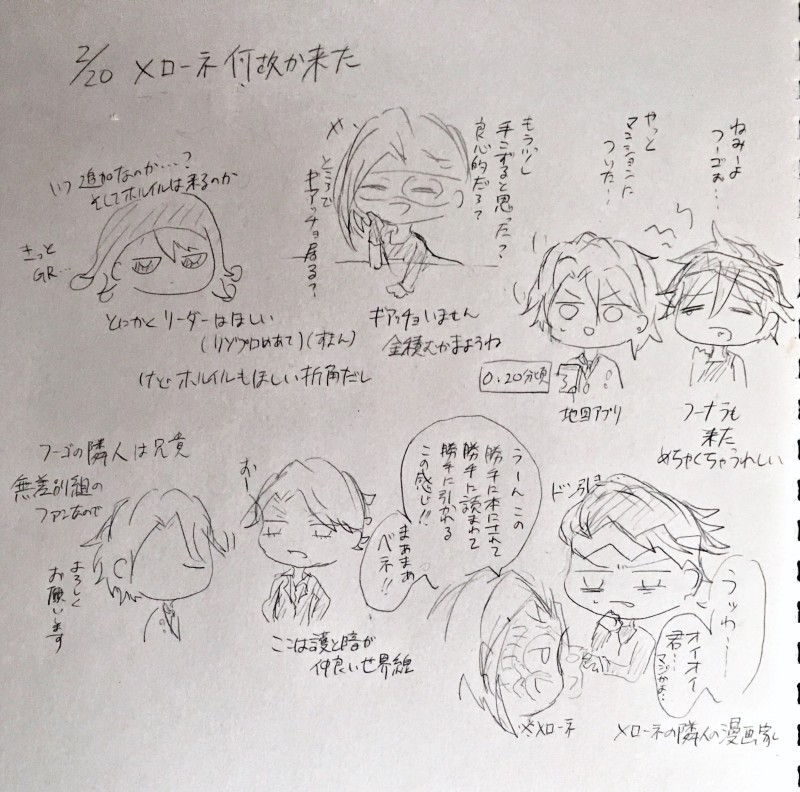 2/20 メローネ何故か来た
ねみーよ
フーゴお…
やっと
マンションに
ついた…
もう少し
手こずると思った?
良心的だろ?
ところで
ギアッチョ居る?
いつ追加なのか…?
そしてホルイルは来るのか
きっと
GR…
とにかくリーダーはほしい
(リゾプロめあて)(すよん)
けどホルイルもほしい折角だし
ギアッチョいません
金積むかまようね
0:20分頃
地図アプリ
フーナラも
来た
めちゃくちゃうれしい
フーゴの隣人は兄貴
無差別組の
ファンなので
よろしく
お願いします
おー
ここは護と暗が
仲良い世界線
うーんこの
勝手に本にされて
勝手に読まれて
勝手に引かれる
この感じ!!
まあまあ
ベネ!!
ドン引き
うッわ…
オイオイ
君…
マジかよ…
※メローネ
メローネの隣人の漫画家